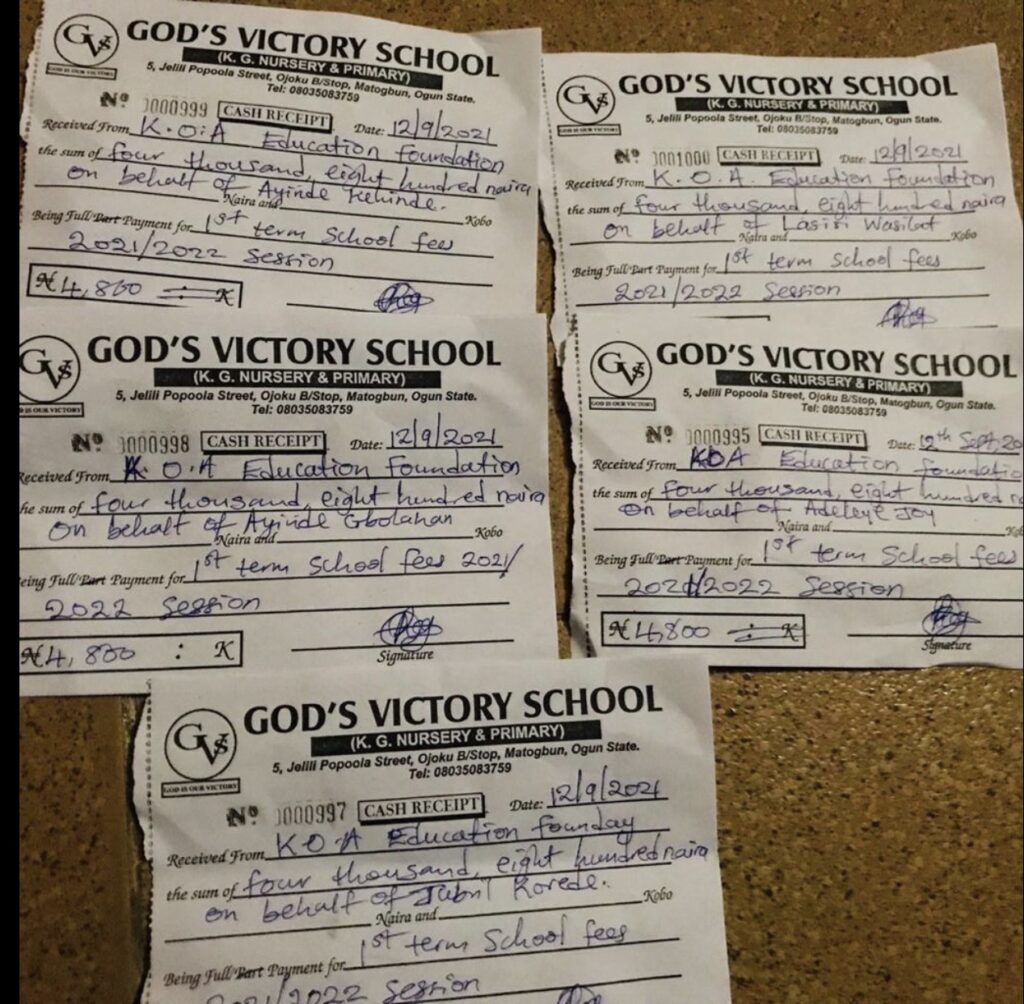 GVS
GOD IS OUR VICTORY
GOD'S VICTORY SCHOOL
(K. G. NURSERY & PRIMARY)
5, Jelili Popoola Street, Ojoku B/Stop, Matogbun, Ogun State.
Tel: 08035083759
Nº 0000999 CASH RECEIPT Date: 12/9/2021
Received From K.O.A Education Foundation
the sum of four thousand, eight hundred naira
on behalf of Ayinde Kehinde.
Naira and Kobo
Being Full/Part Payment for 1st term School fees
2021/2022 Session
₦4,800 K
GVS
GOD IS OUR VICTORY
GOD'S VICTORY SCHOOL
(K. G. NURSERY & PRIMARY)
5, Jelili Popoola Street, Ojoku B/Stop, Matogbun, Ogun State.
Tel: 08035083759
Nº 0001000 CASH RECEIPT Date: 12/9/2021
Received From K.O.A. Education Foundation
the sum of four thousand, eight hundred naira
on behalf of Lasisi Wasilat
Naira and Kobo
Being Full/Part Payment for 1st term School fees
2021/2022 Session
GVS
D IS OUR VICTORY
GOD'S VICTORY SCHOOL
(K. G. NURSERY & PRIMARY)
5, Jelili Popoola Street, Ojoku B/Stop, Matogbun, Ogun State.
Tel: 08035083759
Nº 0000998 CASH RECEIPT Date: 12/9/2021
Received From K.O.A Education Foundation
he sum of four thousand, eight hundred naira
on behalf of Ayinde Gbolahan
Naira and Kobo
eing Full/Part Payment for 1st term School fees 2021/
2022 Session
₦4,800 : K
Signature
GVS
GOD IS OUR VICTORY
GOD'S VICTORY SCHOOL
(K. G. NURSERY & PRIMARY)
5, Jelili Popoola Street, Ojoku B/Stop, Matogbun, Ogun State.
Tel: 08035083759
Nº 0000995 CASH RECEIPT Date: 12th Sept, 20
Received From KOA Education foundatio
the sum of four thousand, eight hundred na
on behalf of Adeleye Joy
Naira and Ko
Being Full/Part Payment for 1st term School fees
2021/2022 Session
₦4,800 K
Signature
GVS
GOD IS OUR VICTORY
GOD'S VICTORY SCHOOL
(K. G. NURSERY & PRIMARY)
5, Jelili Popoola Street, Ojoku B/Stop, Matogbun, Ogun State.
Tel: 08035083759
Nº 0000997 CASH RECEIPT Date: 12/9/2021
Received From K.O.A Education Founday
the sum of four thousand, eight hundred naira
on behalf of Jubril Korede.
Naira and Kobo
Being Full/Part Payment for 1st term School fees
2021/2022 Session